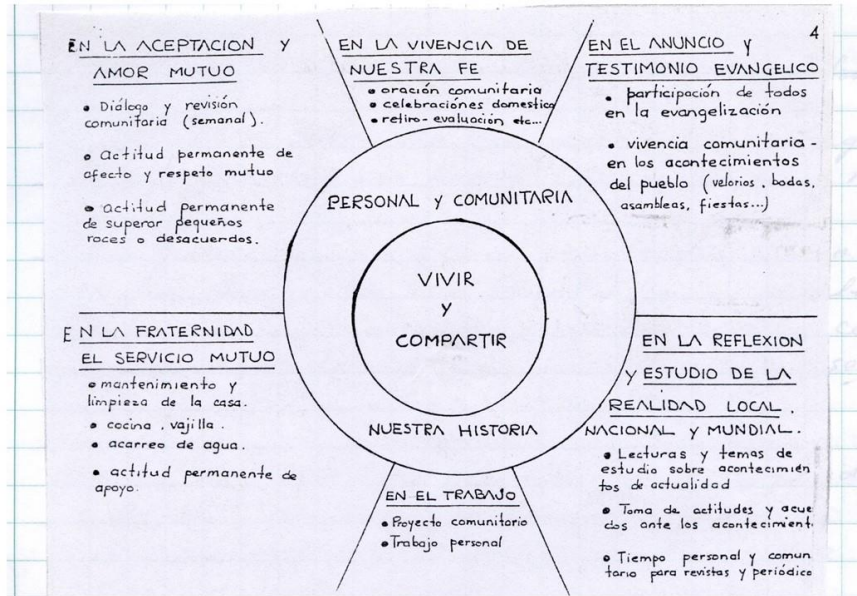 4
EN LA ACEPTACION Y
AMOR MUTUO
• Diálogo y revisión
comunitaria (semanal).
• Actitud permanente de
afecto y respeto mutuo
• actitud permanente
de superar pequeños
roces o desacuerdos.
EN LA VIVENCIA DE
NUESTRA FE
• oración comunitaria
• celebraciónes domestica
• retiro - evaluación etc...
EN EL ANUNCIO Y
TESTIMONIO EVANGELICO
• participación de todos
en la evangelización
• vivencia comunitaria -
en los acontecimientos
del pueblo (velorios, bodas,
asambleas, fiestas...)
PERSONAL Y COMUNITARIA
VIVIR
Y
COMPARTIR
NUESTRA HISTORIA
EN LA FRATERNIDAD
EL SERVICIO MUTUO
• mantenimiento y
limpieza de la casa.
• cocina, vajilla.
• acarreo de agua.
• actitud permanente de
apoyo.
EN EL TRABAJO
• Proyecto comunitario
• Trabajo personal
EN LA REFLEXION
Y ESTUDIO DE LA
REALIDAD LOCAL,
NACIONAL Y MUNDIAL.
• Lecturas y temas de
estudio sobre acontecimien
tos de actualidad
• Toma de actitudes y acue
dos ante los acontecimient.
• Tiempo personal y comun
tario para revistas y periódico